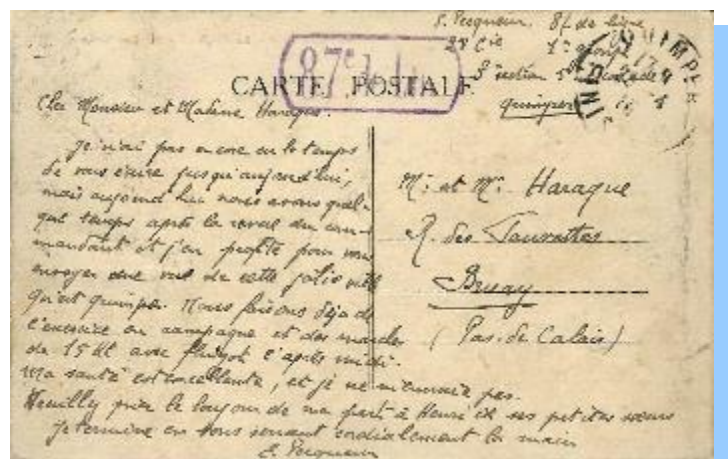 E. Pecqueur 87 de ligne
28 Cie 1er group
3e section 5e escouade
Quimper
87e
CARTE POSTALE
QUIMPER
Cher Monsieur et Madame Haraque.
Je n'ai pas encore eu le temps
de vous écrire jusqu'aujourd'hui,
mais aujourd'hui nous avons quel-
que temps après la revue du com-
mandant et j'en profite pour vous
envoyer une vue de cette jolie ville
qu'est quimper. Nous faisons déja de
l'exercice en campagne et des marches
de 15 Kl avec l'après midi.
Ma santé est excellente, et je ne m'ennuie pas.
de ma part à Henri et ses petites sœurs
Je termine en vous serrant cordialement la main
E. Pecqueur
Mr et Me Haraque
R. des Tourettes
Bruay
(Pas-de Calais)